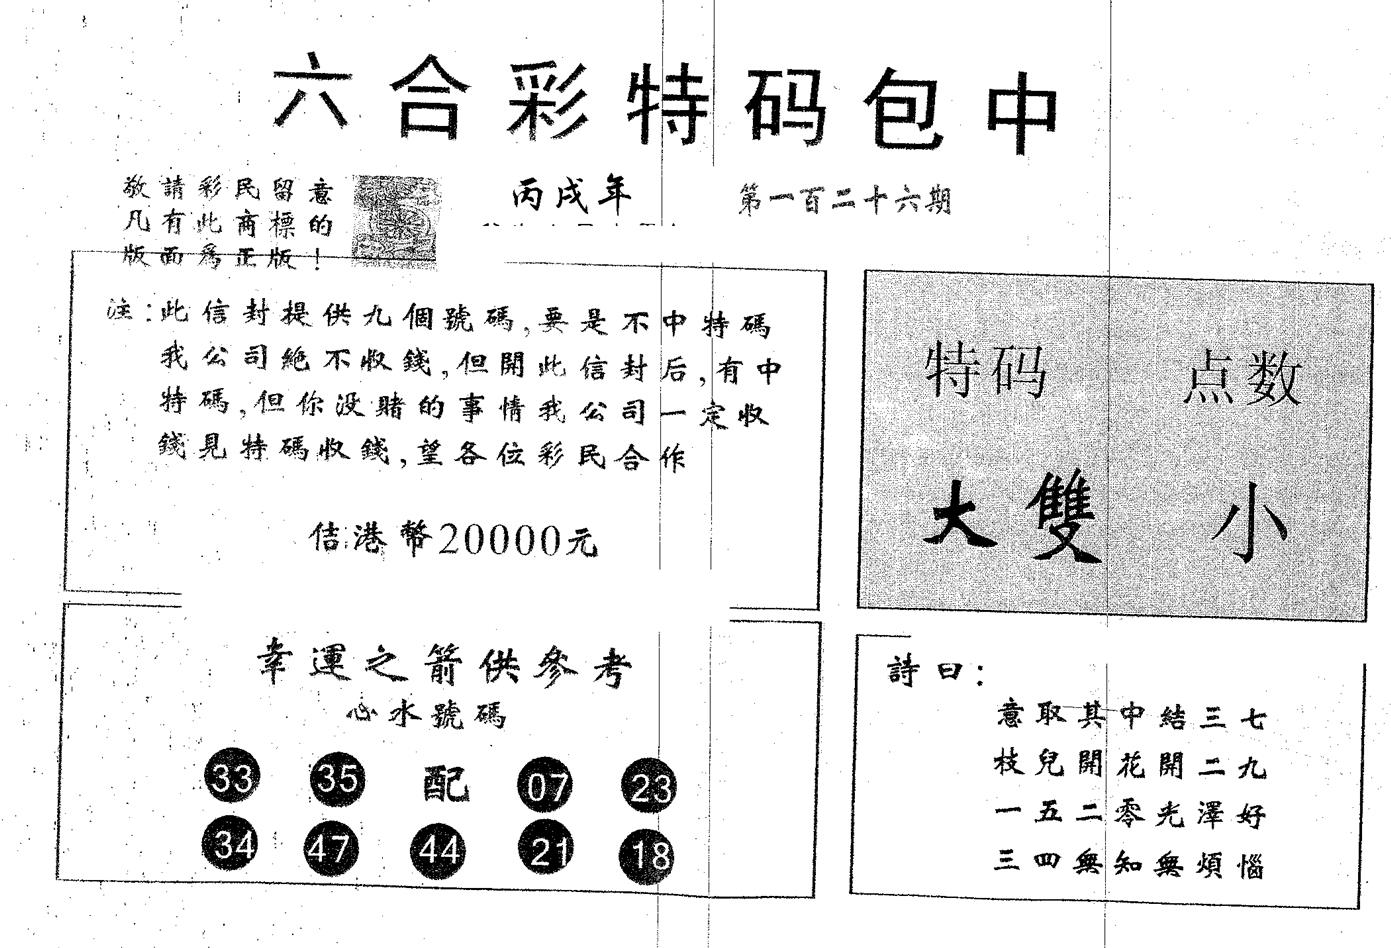 六合彩特码包中
敬請彩民留意
凡有此商標的
版面爲正版！
丙戌年
第一百二十六期
注：此信封提供九個號碼，要是不中特碼
我公司絶不收錢，但開此信封后，有中
特碼，但你没賭的事情我公司一定收
錢見特碼收錢，望各位彩民合作
佶港幣20000元
特码 点数
大雙 小
幸運之箭供參考
心水號碼
33 35 配 07 23
34 47 44 21 18
詩曰：
意取其中結三七
枝兒開花開二九
一五二零光澤好
三四無知無煩惱